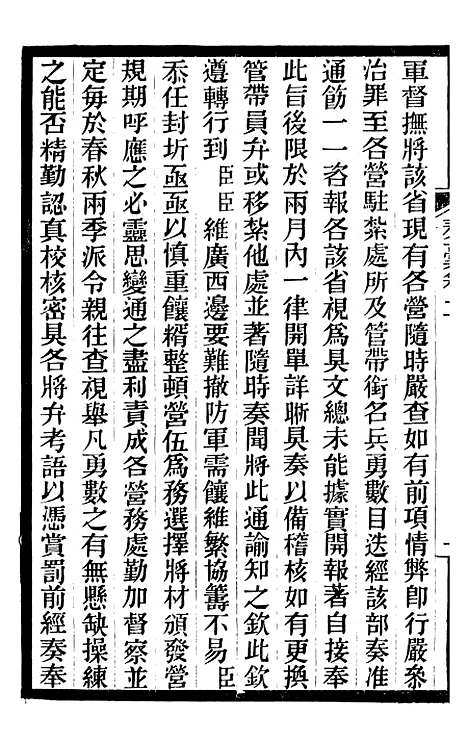 軍督撫將該省現有各營隨時嚴查如有前項情弊卽行嚴叅
治罪至各營駐紮處所及管帶銜名兵勇數目迭經該部奏准
通飭一一咨報各該省視爲具文總未能據實開報著自接奉
此旨後限於兩月內一律開單詳晰具奏以備稽核如有更換
管帶員弁或移紮他處並著隨時奏聞將此通諭知之欽此欽
遵轉行到臣臣維廣西邊要難撤防軍需饟維繁協籌不易臣
忝任封圻亟亟以慎重饟糈整頓營伍爲務選擇將材頒發營
規期呼應之必靈思變通之盡利責成各營務處勤加督察並
定每於春秋兩季派令親往查視舉凡勇數之有無懸缺操練
之能否精勤認真校核密具各將弁考語以憑賞罰前經奏奉